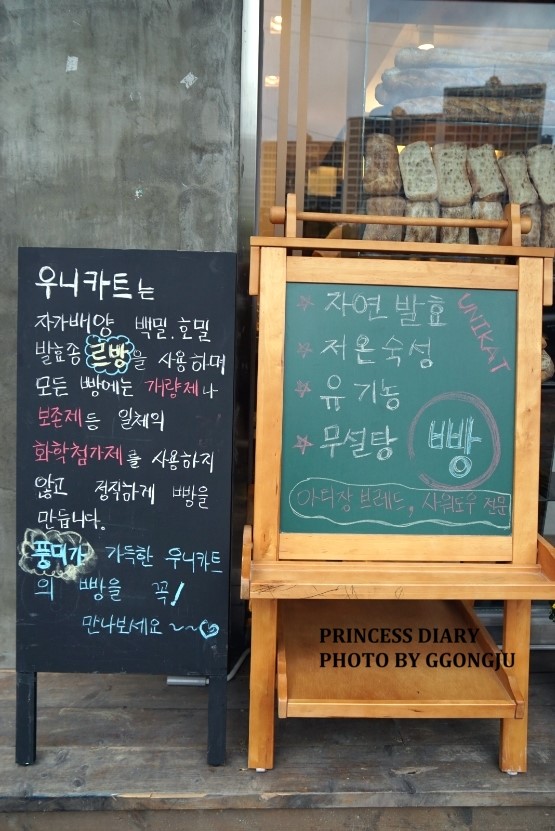 우니카트는
자가배양 백밀, 호밀
발효종 르방을 사용하며
모든 빵에는 개량제나
보존제등 일체의
화학첨가제를 사용하지
않고 정직하게 빵을
만듭니다.
풍미가 가득한 우니카트
의 빵을 꼭!
만나보세요~~♡
☆ 자연 발효
UNIKAT
☆ 저온숙성
☆ 유기농
☆ 무설탕
빵
아티장 브레드, 사워도우 전문
PRINCESS DIARY
PHOTO BY GGONGJU